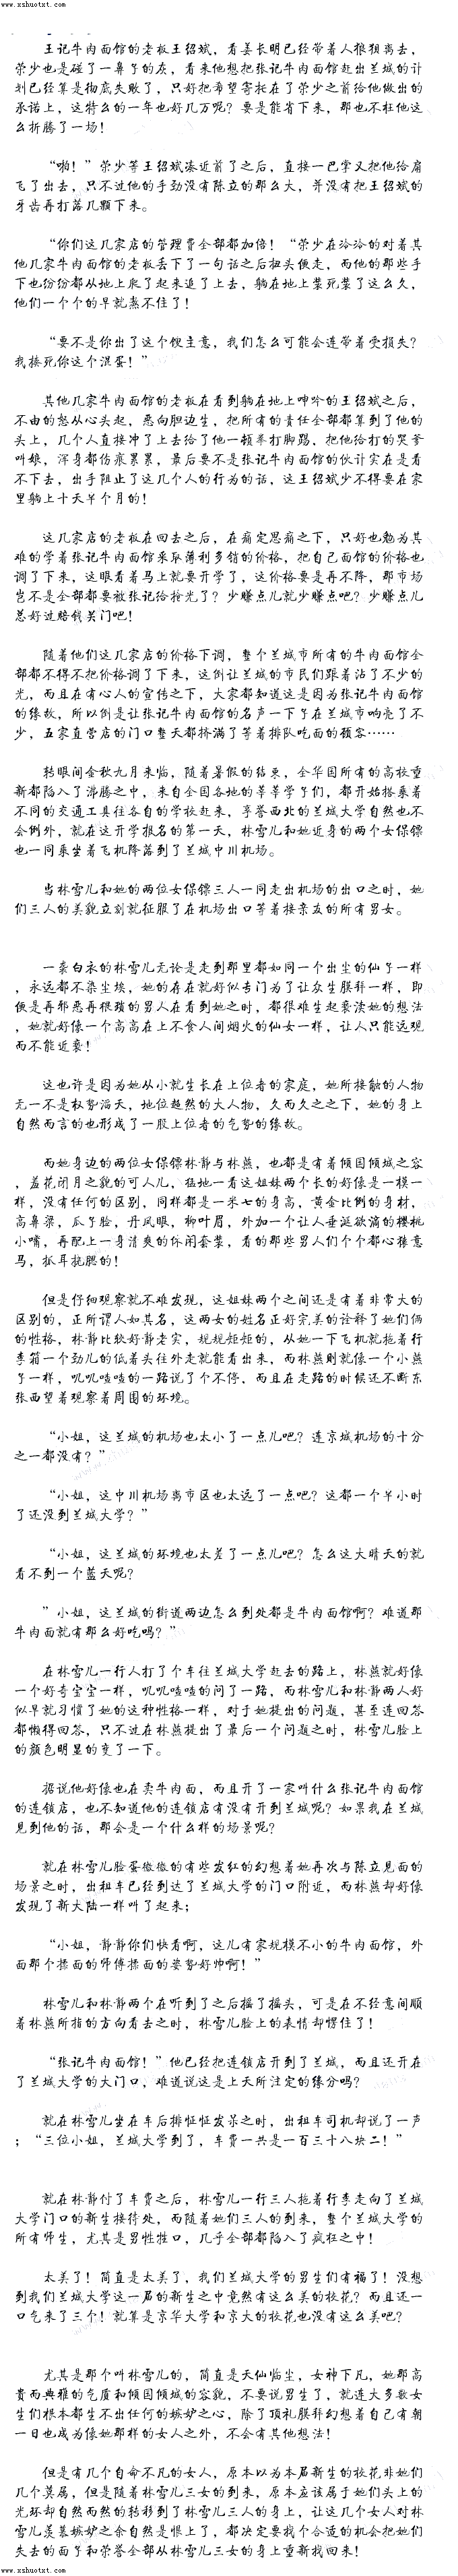 www.xshuotxt.com
王记牛肉面馆的老板王绍斌，看姜长明已经带着人狼狈离去，
荣少也是碰了一鼻子的灰，看来他想把张记牛肉面馆赶出兰城的计
划已经算是彻底失败了，只好把希望寄托在了荣少之前给他做出的
承诺上，这特么的一年也好几万呢？要是能省下来，那也不枉他这
么折腾了一场！
“啪！”荣少等王绍斌凑近前了之后，直接一巴掌又把他给扇
飞了出去，只不过他的手劲没有陈立的那么大，并没有把王绍斌的
牙齿再打落几颗下来。
“你们这几家店的管理费全部都加倍！“荣少在冷冷的对着其
他几家牛肉面馆的老板丢下了一句话之后扭头便走，而他的那些手
下也纷纷都从地上爬了起来追了上去，躺在地上装死装了这么久，
他们一个个的早就熬不住了！
“要不是你出了这个馊主意，我们怎么可能会连带着受损失？
我揍死你这个混蛋！”
其他几家牛肉面馆的老板在看到躺在地上呻吟的王绍斌之后，
不由的怒从心头起，恶向胆边生，把所有的责任全部都算到了他的
头上，几个人直接冲了上去给了他一顿拳打脚踢，把他给打的哭爹
叫娘，浑身都伤痕累累，最后要不是张记牛肉面馆的伙计实在是看
不下去，出手阻止了这几个人的行为的话，这王绍斌少不得要在家
里躺上十天半个月的！
这几家店的老板在回去之后，在痛定思痛之下，只好也勉为其
难的学着张记牛肉面馆采取薄利多销的价格，把自己面馆的价格也
调了下来，这眼看着马上就要开学了，这价格要是再不降，那市场
岂不是全部都要被张记给抢光了？少赚点儿就少赚点吧？少赚点儿
总好过赔钱关门吧！
随着他们这几家店的价格下调，整个兰城市所有的牛肉面馆全
部都不得不把价格调了下来，这倒让兰城的市民们跟着沾了不少的
光，而且在有心人的宣传之下，大家都知道这是因为张记牛肉面馆
的缘故，所以倒是让张记牛肉面馆的名声一下子在兰城市响亮了不
少，五家直营店的门口整天都挤满了等着排队吃面的顾客……
转眼间金秋九月来临，随着暑假的结束，全华国所有的高校重
新都陷入了沸腾之中，来自全国各地的莘莘学子们，都开始搭乘着
不同的交通工具往各自的学校赶来，享誉西北的兰城大学自然也不
会例外，就在这开学报名的第一天，林雪儿和她近身的两个女保镖
也一同乘坐着飞机降落到了兰城中川机场。
当林雪儿和她的两位女保镖三人一同走出机场的出口之时，她
们三人的美貌立刻就征服了在机场出口等着接亲友的所有男女。
一袭白衣的林雪儿无论是走到那里都如同一个出尘的仙子一样
，永远都不染尘埃，她的存在就好似专门为了让众生膜拜一样，即
便是再邪恶再猥琐的男人在看到她之时，都很难生起亵渎她的想法
，她就好像一个高高在上不食人间烟火的仙女一样，让人只能远观
而不能近亵！
这也许是因为她从小就生长在上位者的家庭，她所接触的人物
无一不是权势滔天，地位超然的大人物，久而久之之下，她的身上
自然而言的也形成了一股上位者的气势的缘故。
而她身边的两位女保镖林静与林燕，也都是有着倾国倾城之容
，羞花闭月之貌的可人儿，猛地一看这姐妹两个长的好像是一模一
样，没有任何的区别，同样都是一米七的身高，黄金比例的身材，
高鼻梁，瓜子脸，丹凤眼，柳叶眉，外加一个让人垂涎欲滴的樱桃
小嘴，再配上一身清爽的休闲套装，看的那些男人们个个都心猿意
马，抓耳挠腮的！
但是仔细观察就不难发现，这姐妹两个之间还是有着非常大的
区别的，正所谓人如其名，这两女的姓名正好完美的诠释了她们俩
的性格，林静比较好静老实，规规矩矩的，从她一下飞机就拖着行
李箱一个劲儿的低着头往外走就能看出来，而林燕则就像一个小燕
子一样，叽叽喳喳的一路说了个不停，而且在走路的时候还不断东
张西望着观察着周围的环境。
“小姐，这兰城的机场也太小了一点儿吧？连京城机场的十分
之一都没有？”
“小姐，这中川机场离市区也太远了一点吧？这都一个半小时
了还没到兰城大学？”
“小姐，这兰城的环境也太差了一点儿吧？怎么这大晴天的就
看不到一个蓝天呢？
”小姐，这兰城的街道两边怎么到处都是牛肉面馆啊？难道那
牛肉面就有那么好吃吗？”
在林雪儿一行人打了个车往兰城大学赶去的路上，林燕就好像
一个好奇宝宝一样，叽叽喳喳的问了一路，而林雪儿和林静两人好
似早就习惯了她的这种性格一样，对于她提出的问题，甚至连回答
都懒得回答，只不过在林燕提出了最后一个问题之时，林雪儿脸上
的颜色明显的变了一下。
据说他好像也在卖牛肉面，而且开了一家叫什么张记牛肉面馆
的连锁店，也不知道他的连锁店有没有开到兰城呢？如果我在兰城
见到他的话，那会是一个什么样的场景呢？
就在林雪儿脸蛋微微的有些发红的幻想着她再次与陈立见面的
场景之时，出租车已经到达了兰城大学的门口附近，而林燕却好像
发现了新大陆一样叫了起来；
“小姐，静静你们快看啊，这儿有家规模不小的牛肉面馆，外
面那个揉面的师傅揉面的姿势好帅啊！”
林雪儿和林静两个在听到了之后摇了摇头，可是在不经意间顺
着林燕所指的方向看去之时，林雪儿脸上的表情却愣住了！
“张记牛肉面馆！”他已经把连锁店开到了兰城，而且还开在
了兰城大学的大门口，难道说这是上天所注定的缘分吗？
就在林雪儿坐在车后排怔怔发呆之时，出租车司机却说了一声
；“三位小姐，兰城大学到了，车费一共是一百三十八块二！”
就在林静付了车费之后，林雪儿一行三人拖着行李走向了兰城
大学门口的新生接待处，而随着她们三人的到来，整个兰城大学的
所有师生，尤其是男性牲口，几乎全部都陷入了疯狂之中！
太美了！简直是太美了，我们兰城大学的男生们有福了！没想
到我们兰城大学这一届的新生之中竟然有这么美的校花？而且还一
口气来了三个！就算是京华大学和京大的校花也没有这么美吧？
尤其是那个叫林雪儿的，简直是天仙临尘，女神下凡，她那高
贵而典雅的气质和倾国倾城的容貌，不要说男生了，就连大多数女
生们根本都生不出任何的嫉妒之心，除了顶礼膜拜幻想着自己有朝
一日也成为像她那样的女人之外，不会有其他想法！
但是有几个自命不凡的女人，原本以为本届新生的校花非她们
几个莫属，但是随着林雪儿三女的到来，原本应该属于她们头上的
光环却自然而然的转移到了林雪儿三人的身上，让这几个女人对林
雪儿羡慕嫉妒之余自然是恨上了，都决定要找个合适的机会把她们
失去的面子和荣誉全部从林雪儿三女的身上重新找回来！
www.xshuotxt.com